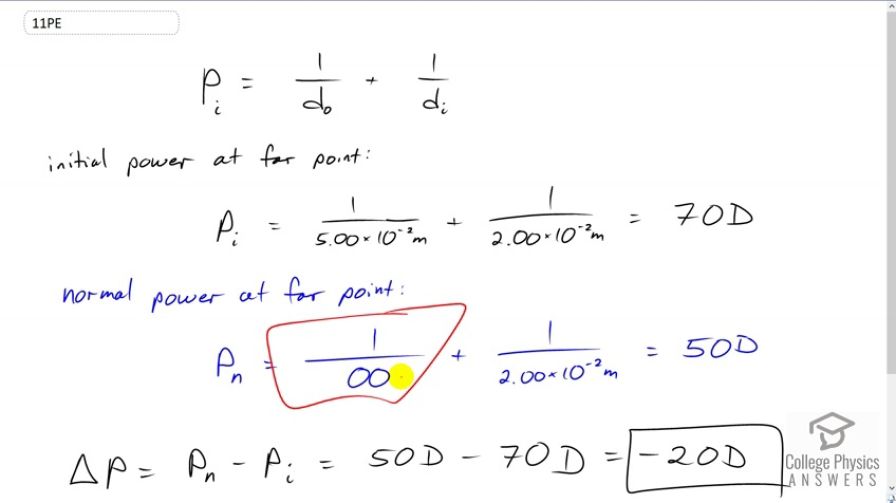 11PE
P_i = 1/d_o + 1/d_i
initial power at far point:
P_i = 1/5.00×10^-2 m + 1/2.00×10^-2 m = 70D
normal power at far point:
P_n = 1/∞ + 1/2.00×10^-2 m = 50D
ΔP = P_n - P_i = 50D - 70D = -20D
College Physics
ANSWERS